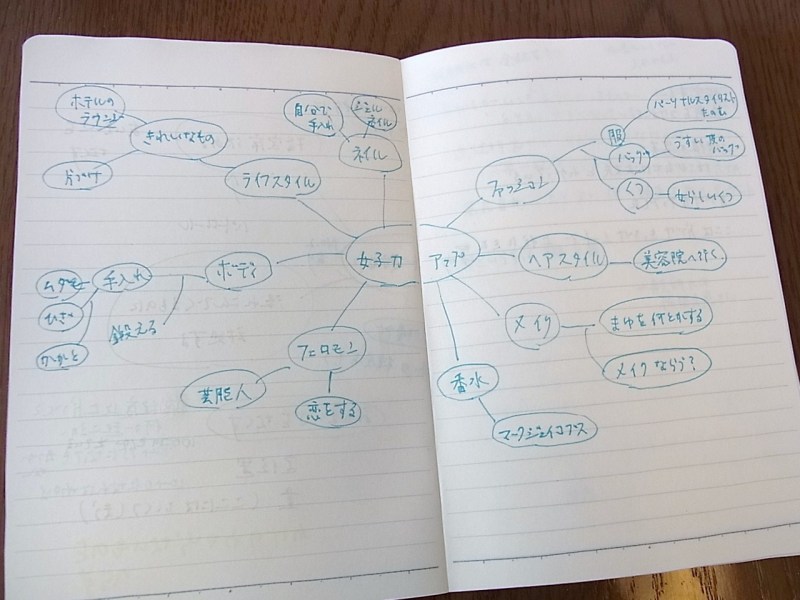 ホテルの
ラウンジ
きれいなもの
片づけ
ライフスタイル
自分で
手入れ
ジェル
ネイル
ネイル
女子力
アップ
ボディ
手入れ
ムダ毛
ひざ
かかと
鍛える
フェロモン
芸能人
恋をする
ファッション
服
パーソナルスタイリスト
たのむ
バッグ
うすい色の
バッグ
くつ
女らしいくつ
ヘアスタイル
美容院へ行く
メイク
まゆを何とかする
メイクならう?
香水
マークジェイコブス